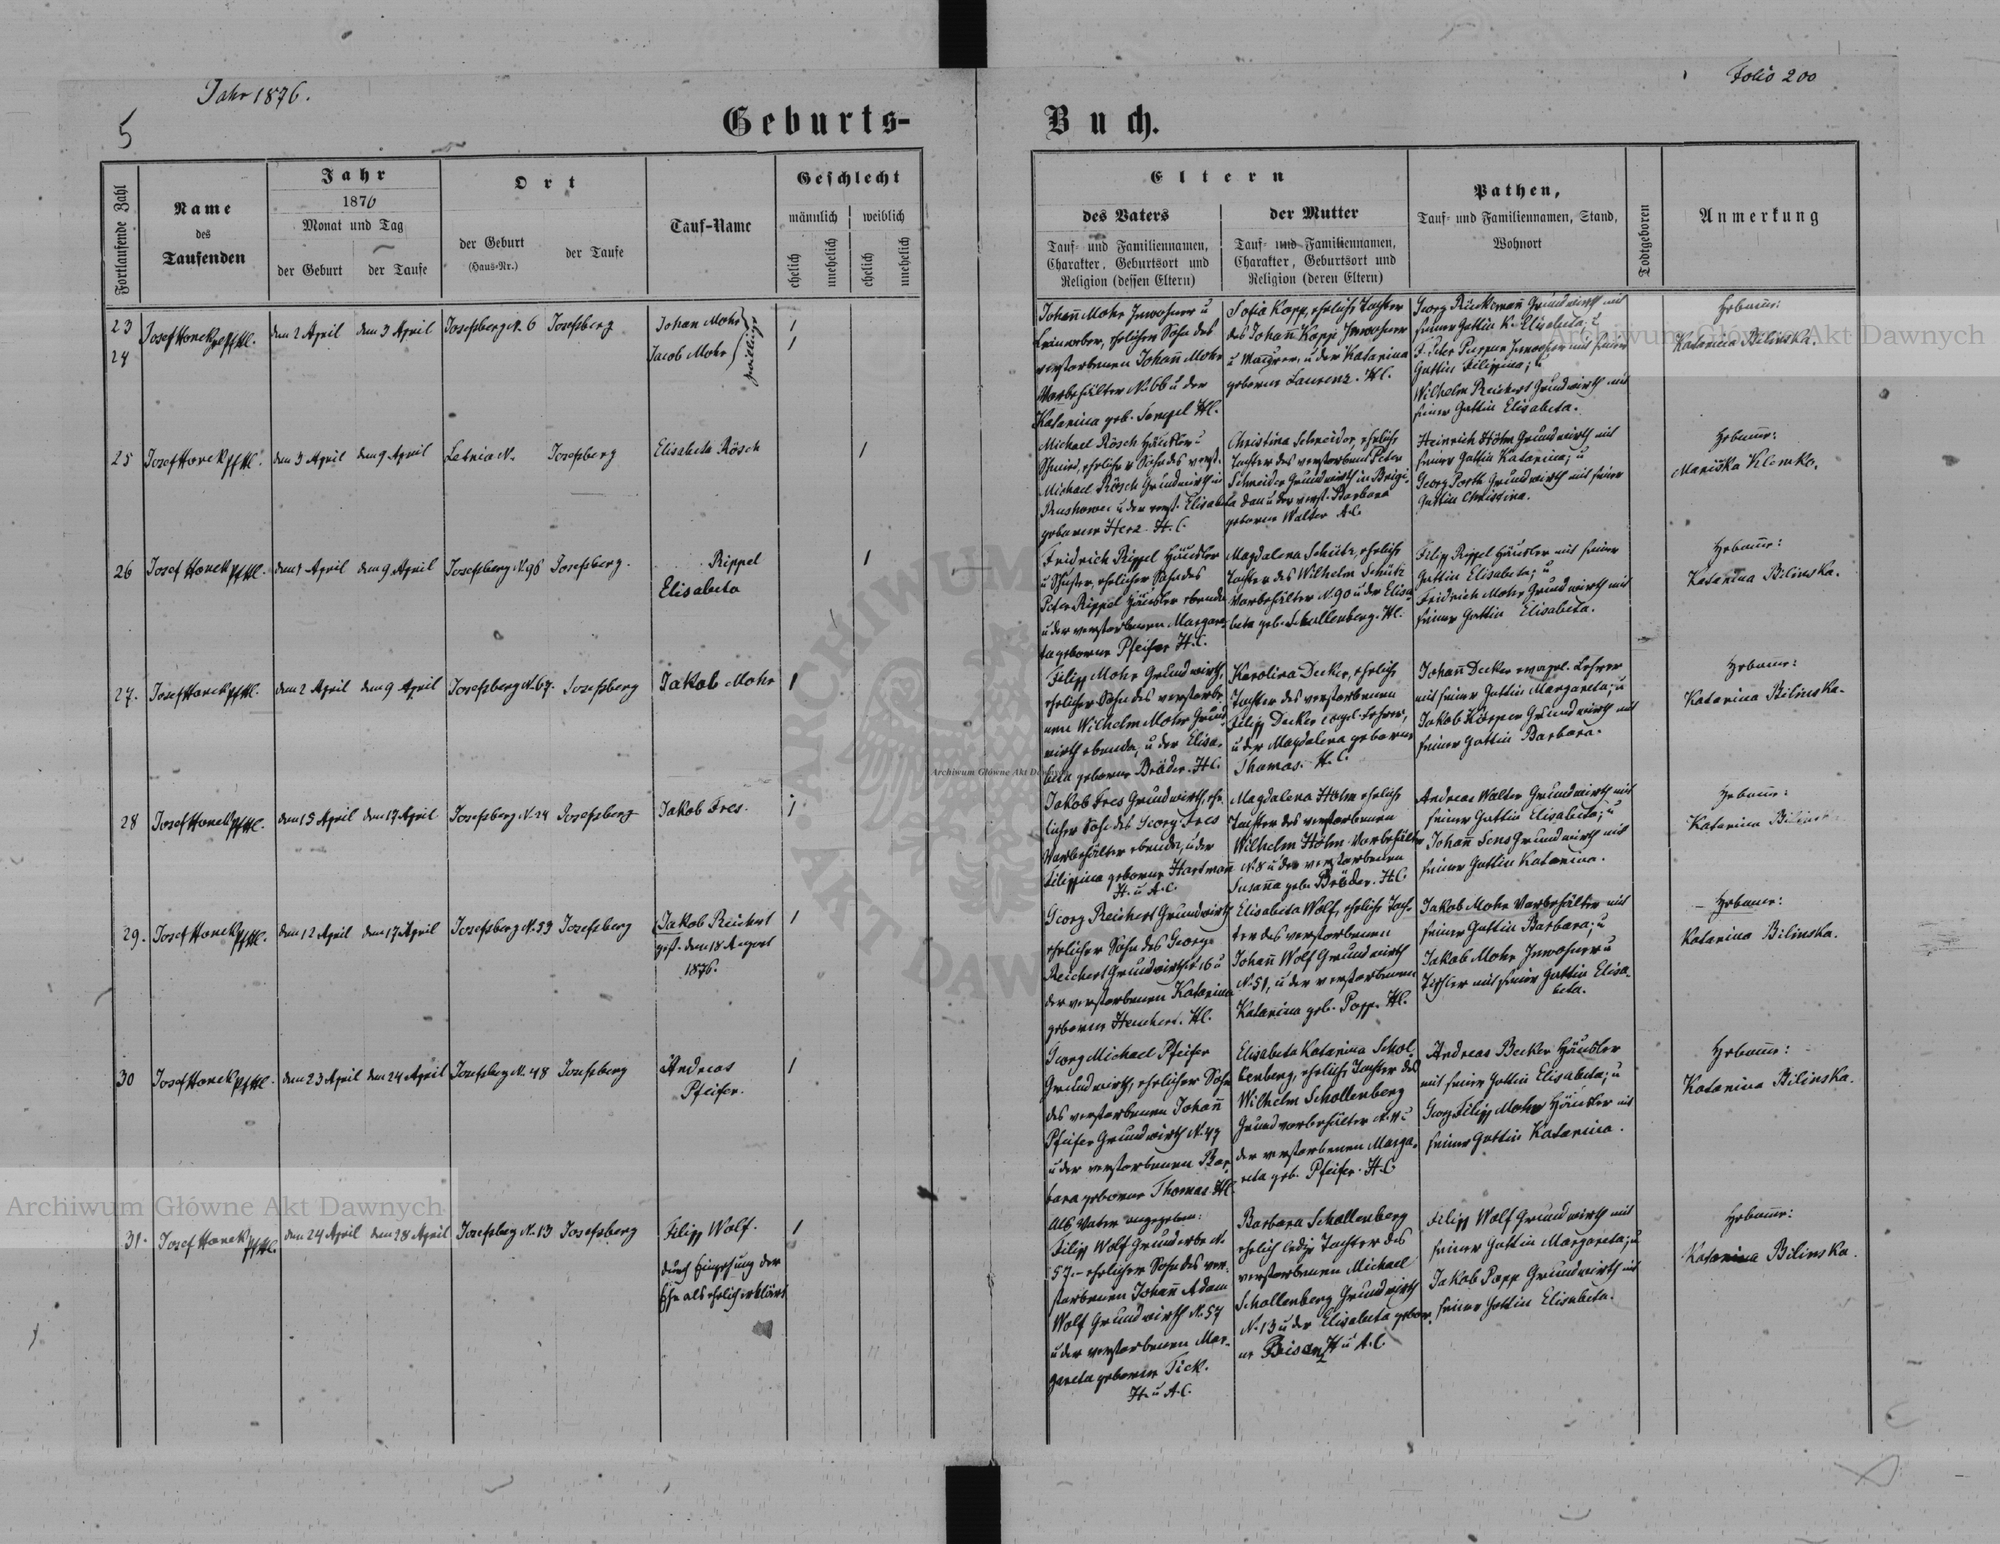 Jahr 1876.
Folio 200
5
Geburts-
Buch.
Fortlaufende Zahl
Name
des
Taufenden
Jahr
1876
Monat und Tag
der Geburt
der Taufe
Ort
der Geburt
(Haus-Nr.)
der Taufe
Tauf-Name
Geschlecht
männlich
weiblich
ehelich
unehelich
ehelich
unehelich
Eltern
des Vaters
Tauf- und Familiennamen,
Charakter, Geburtsort und
Religion (dessen Eltern)
der Mutter
Tauf- und Familiennamen,
Charakter, Geburtsort und
Religion (deren Eltern)
Pathen,
Tauf- und Familiennamen, Stand,
Wohnort
Todtgeboren
Anmerkung
23
24
Josef Honek
den 2 April
den 3 April
Josefsberg N. 6
Josefsberg
Johan Mohr
Jacob Mohr
1
1
Johann Mohr Inwohner u
Leinweber, ehelicher Sohn des
verstorbenen Johann Mohr
Vorbehälter N. 66 u der
Katarina geb. H.C.
Sofia Kopp, eheliche Tochter
des Johann Kopp Inwohner
u Maurer, u der Katarina
geborne Laurenz. H.C.
Georg Grundwirth mit
seiner Gattin K. Elisabeta; u
Inwohner mit seiner
Gattin Filippina; u
Wilhelm Reichert Grundwirth mit
seiner Gattin Elisabeta.
Hebamme:
Katarina Bilinska.
25
Josef Honek
den 3 April
den 9 April
Letnia N.
Josefsberg
Elisabeta Rösch
1
Michael Rösch Häusler u
ehelicher Sohn des verst.
Michael Rösch Grundwirth in
u der verst. Elisabeta
geborne Herz. H.C.
Christina Schneider, eheliche
Tochter des verstorbenen Peter
Schneider Grundwirth in Brigi-
dau u der verst. Barbara
geborne Walter A.C.
Heinrich Höhn Grundwirth mit
seiner Gattin Katarina; u
Georg Porth Grundwirth mit seiner
Gattin Christina.
Hebamme:
Mariška Klemko.
26
Josef Honek
April
den 9 April
Josefsberg N. 96
Josefsberg.
Rippel
Elisabeta
1
Fridrich Rippel Häusler
u Schuster, ehelicher Sohn des
Peter Rippel Häusler ebenda
u der verstorbenen Margare-
ta geborne Pfeifer H.C.
Magdalena Schütz, eheliche
Tochter des Wilhelm Schütz
Vorbehälter N. 90 u der Elisa
beta geb. Schollenberg. H.C.
Filip Rippel Häusler mit seiner
Gattin Elisabeta; u
Fridrich Mohr Grundwirth mit
seiner Gattin Elisabeta.
Hebamme:
Katarina Bilinska.
27.
Josef Honek
den 2 April
den 9 April
Josefsberg N. 67.
Josefsberg
Jakob Mohr
1
Filipp Mohr Grundwirth,
ehelicher Sohn des verstorbe-
nen Wilhelm Mohr Grund
wirth ebenda, u der Elisa-
beta geborne Bräder. H.C.
Karolina Decker, eheliche
Tochter des verstorbenen
Filipp Decker evgel. Lehrer,
u der Magdalena geborne
Thomas. H.C.
Johann Decker evangel. Lehrer
mit seiner Gattin Margareta; u
Jakob Körper Grundwirth mit
seiner Gattin Barbara.
Hebamme:
Katarina Bilinska.
28
Josef Honek
den 15 April
den 17 April
Josefsberg N. 24
Josefsberg
Jakob Fres.
1
Jakob Fres Grundwirth, ehe-
licher Sohn des Georg Fres
Vorbehälter ebenda, u der
Filippina geborne Hartmann
H. u A.C.
Magdalena Höhn eheliche
Tochter des verstorbenen
Wilhelm Höhn Vorbehälter
N. 8 u der verstorbenen
Susanna geb. Bräder. H.C.
Andreas Walter Grundwirth mit
seiner Gattin Elisabeta; u
Johann Sens Grundwirth mit
seiner Gattin Katarina.
Hebamme:
Katarina Bilinska
29.
Josef Honek
den 12 April
den 17 April
Josefsberg N. 53
Josefsberg
Jakob Reichert
gest. den 18 August
1876.
1
Georg Reichert Grundwirth
ehelicher Sohn des Georg
Reichert Grundwirth N. 16 u
der verstorbenen Katarina
geborne Henchert. H.C.
Elisabeta Wolf, eheliche Toch-
ter des verstorbenen
Johann Wolf Grundwirth
N. 51, u der verstorbenen
Katarina geb. Popp. H.C.
Jakob Mohr Vorbehälter mit
seiner Gattin Barbara; u
Jakob Mohr Inwohner u
Tischler mit seiner Gattin Elisa-
beta.
Hebamme:
Katarina Bilinska.
30
Josef Honek
den 23 April
den 24 April
Josefsberg N. 48
Josefsberg
Andreas
Pfeifer.
1
Georg Michael Pfeifer
Grundwirth, ehelicher Sohn
des verstorbenen Johann
Pfeifer Grundwirth N. 47
u der verstorbenen Bar-
bara geborne Thomas H.C.
Elisabeta Katarina Schol
lenberg, eheliche Tochter des
Wilhelm Schollenberg
Grundvorbehälter u
der verstorbenen Marga-
reta geb. Pfeifer. H.C.
Andreas Becker Häusler
mit seiner Gattin Elisabeta; u
Georg Filipp Mohr Häusler mit
seiner Gattin Katarina.
Hebamme:
Katarina Bilinska.
31.
Josef Honek
den 24 April
den 28 April
Josefsberg N. 13
Josefsberg
Filipp Wolf.
durch Eingehung der
Ehe als ehelich erklärt
1
Als Vater angegeben:
Filipp Wolf Grunderbe N.
57. ehelicher Sohn des ver-
storbenen Johann Adam
Wolf Grundwirth N. 57
u der verstorbenen Mar-
gareta geborne Fick.
H. u A.C.
Barbara Schollenberg
ehelich ledige Tochter des
verstorbenen Michael
Schollenberg Grundwirth
N. 13 u der Elisabeta gebor-
ne Bisanz H u A.C.
Filipp Wolf Grundwirth mit
seiner Gattin Margareta; u
Jakob Popp Grundwirth mit
seiner Gattin Elisabeta.
Hebamme:
Katarina Bilinska.
Archiwum Główne Akt Dawnych
Archiwum Główne Akt Dawnych
Archiwum Główne Akt Dawnych
ARCHIWUM
AKT DAW